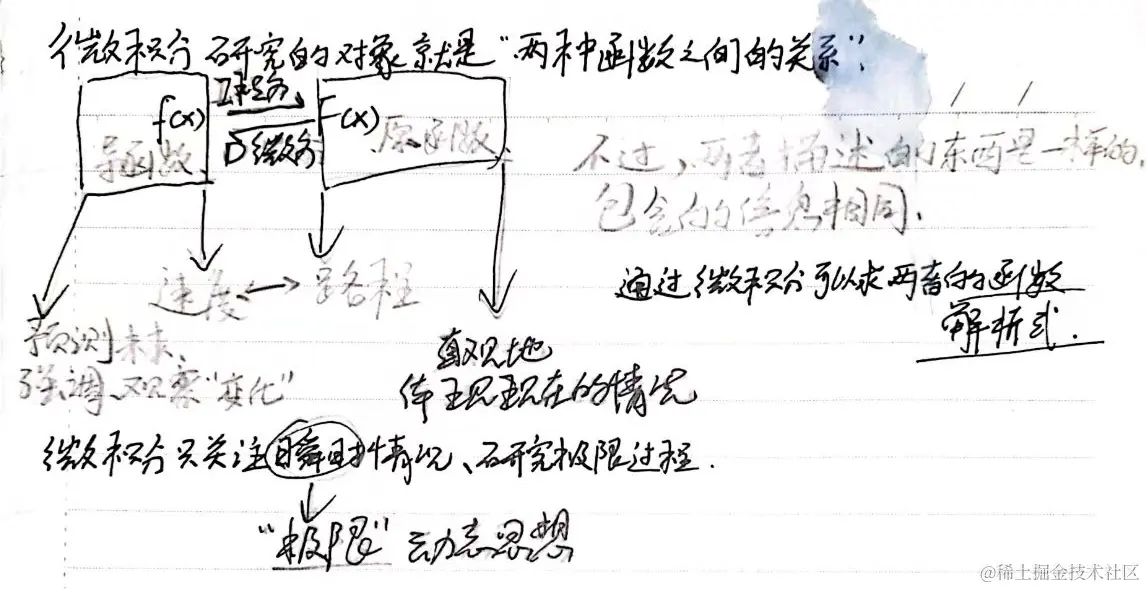 微积分研究的对象就是“两种函数之间的关系”.
f(x) I积分 F(x)
导函数 D微分 原函数
不过，两者描述的东西是一样的，
包含的信息相同.
速度 ↔ 路程
通过微积分可以求两者的函数
解析式.
预测未来、
强调、观察“变化”
直观地
体现现在的情况
微积分只关注瞬时情况、研究极限过程.
“极限”动态思想
@稀土掘金技术社区